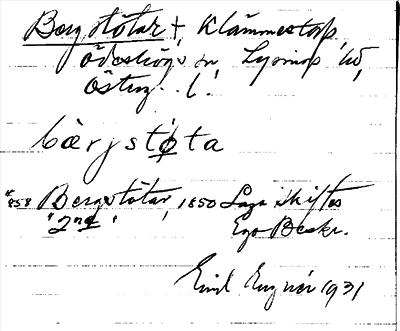 Bergstötar +, Klämmestorp,
Ödeshögs sn Lysings hd,
Österg. l.
bærjstøta
1858 Bergstötar, 1850 Laga skiftes
"2nd" Ego Beskr.
Emil 1931